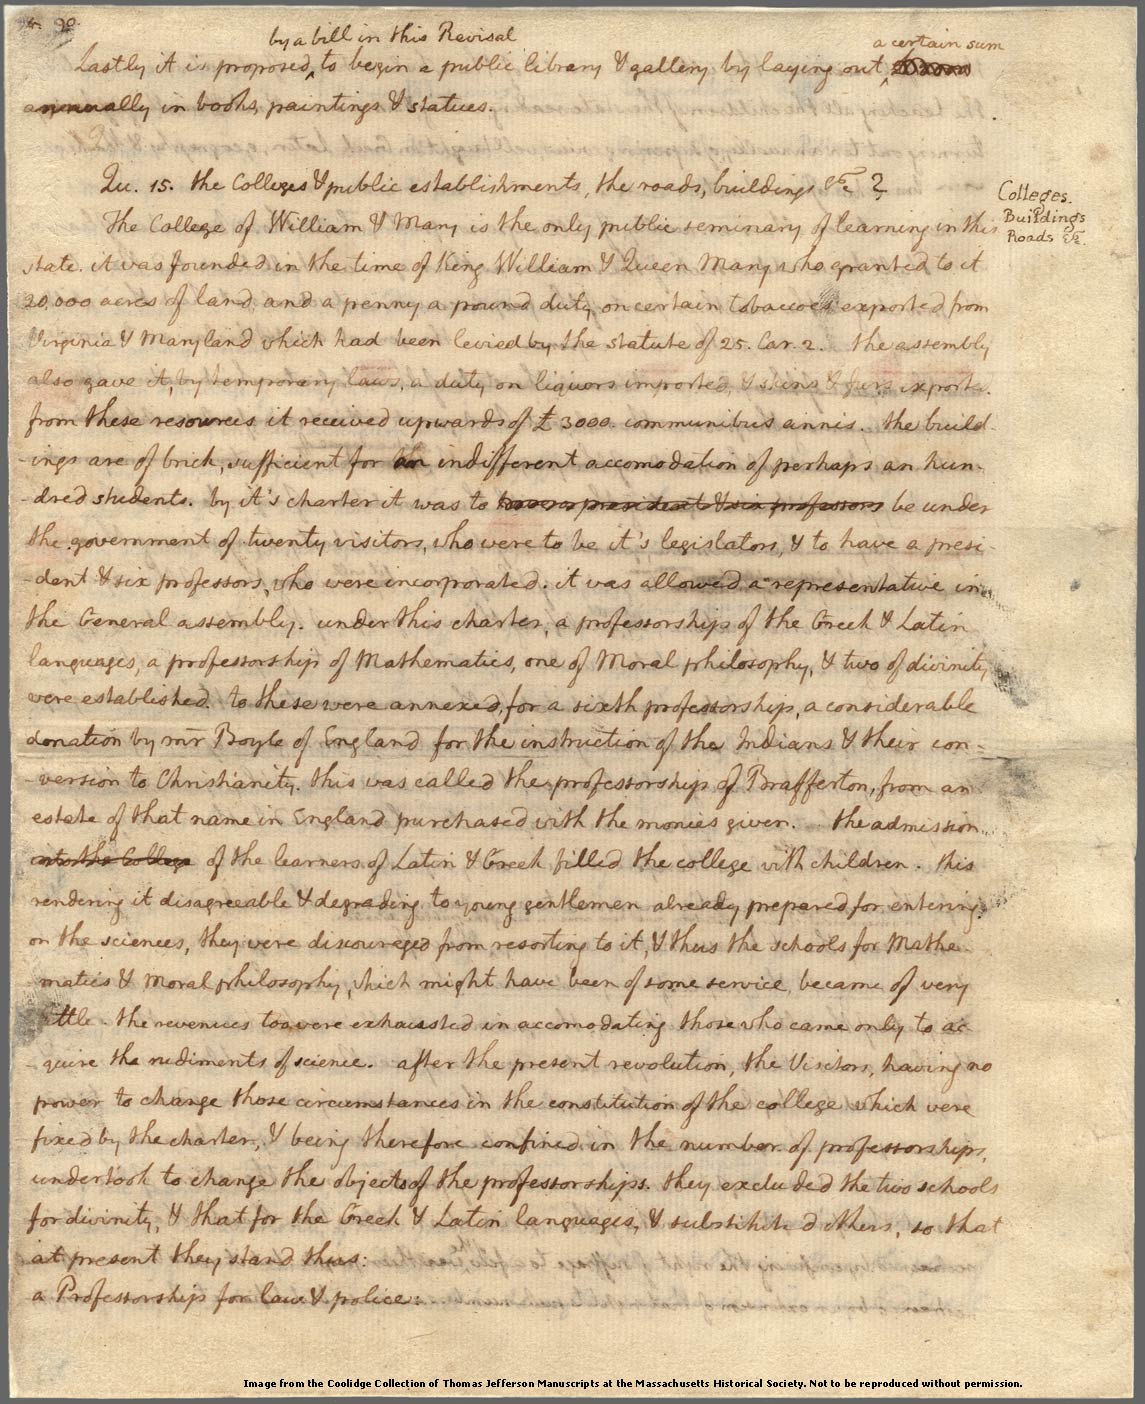 90.
by a bill in this Revisal
a certain sum
Lastly it is proposed, to begin a public library & gallery by laying out
annually in books, paintings & statues.
Qu. 15. the Colleges & public establishments, the roads, buildings &c?
Colleges.
Buildings
Roads &c.
The College of William & Mary is the only public seminary of learning in this
state. it was founded in the time of King William & Queen Mary who granted to it
20,000 acres of land and a penny a pound duty on certain tobaccoes exported from
Virginia & Maryland which had been levied by the statute of 25. Car. 2. the assembly
also gave it, by temporary laws, a duty on liquors imported, & skins & furs exported.
from these resources it received upwards of £3000. communibus annis. the build-
-ings are of brick, sufficient for an indifferent accomodation of perhaps an hun-
-dred students. by it's charter it was to have a president & six professors be under
the government of twenty visitors, who were to be it's legislators, & to have a presi-
-dent & six professors, who were incorporated. it was allowed a representative in
the General assembly. under this charter, a professorship of the Greek & Latin
languages, a professorship of Mathematics, one of Moral philosophy, & two of divinity
were established. to these were annexed, for a sixth professorship, a considerable
donation by mr Boyle of England for the instruction of the Indians & their con=
-version to Christianity. this was called the professorship of Brafferton, from an
estate of that name in England purchased with the monies given. the admission
into the College of the learners of Latin & Greek filled the college with children. this
rendering it disagreeable & degrading to young gentlemen already prepared for entering
on the sciences, they were discouraged from resorting to it, & thus the schools for Mathe-
-matics & Moral philosophy, which might have been of some service, became of very
little. the revenues too were exhausted in accomodating those who came only to ac-
-quire the rudiments of science. after the present revolution, the Visitors, having no
power to change those circumstances in the constitution of the college which were
fixed by the charter, & being therefore confined in the number of professorships,
undertook to change the objects of the professorships. they excluded the two schools
for divinity, & that for the Greek & Latin languages, & substituted others, so that
at present they stand thus:
a Professorship for law & police:
Image from the Coolidge Collection of Thomas Jefferson Manuscripts at the Massachusetts Historical Society. Not to be reproduced without permission.